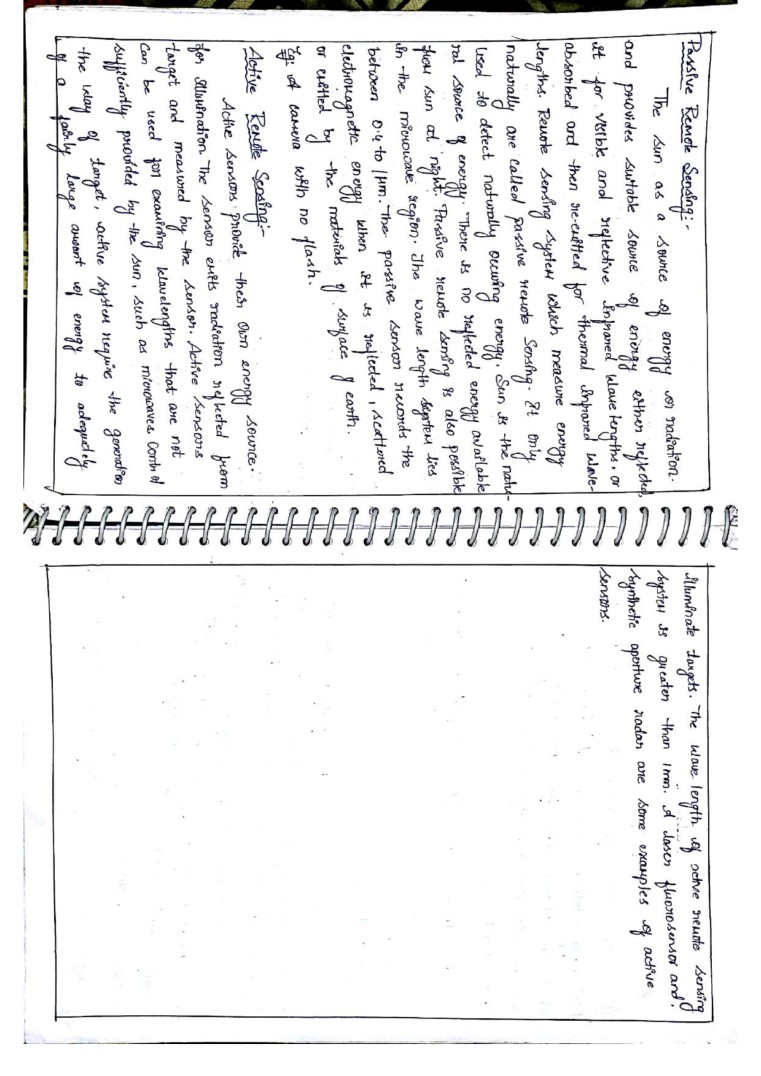 Passive Remote Sensing:-
The sun as a source of energy or radiation.
and provides suitable source of energy either reflected,
it for visible and reflective infrared wave lengths, or
absorbed and then re-emitted for thermal infrared wave-
lengths. Remote sensing system which measure energy
naturally are called passive remote Sensing. It only
used to detect naturally occuring energy. Sun is the natu-
ral source of energy. There is no reflected energy available
from sun at night. Passive remote sensing is also possible
in the microwave region. The wave length system lies
between 0.4 to 1mm. The passive sensor records the
electromagnetic energy when it is reflected, scattered
or emitted by the materials of surface of earth.
Eg: A camera with no flash.
Active Remote Sensing:-
Active sensors provide their own energy source.
for illumination The sensor emits radiation reflected from
target and measured by the sensor. Active sensors
can be used for examining wavelengths that are not
sufficiently provided by the sun, such as microwaves. Control
the way of target, active system require the generation
of a fairly large amount of energy to adequately
illuminate targets. The wave length of active remote sensing
system is greater than 1mm. A laser fluorosensor and
synthetic aperture radar are some examples of active
sensors.